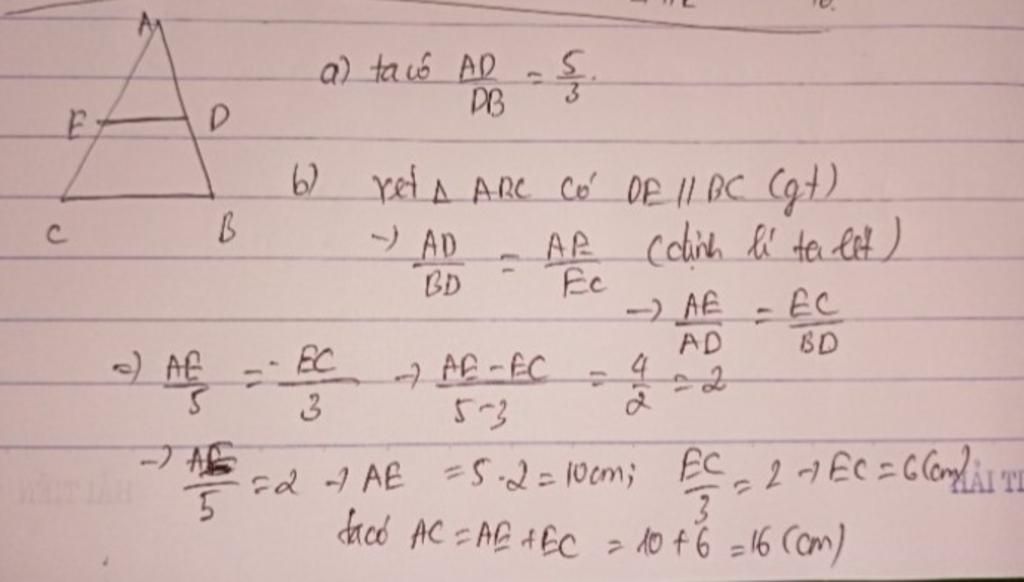 A
E D
C B
a) ta có AD/DB = 5/3.
b) xet Δ ABC Có DE // BC (gt)
→ AD/BD = AE/EC (định lí ta lét)
→ AE/AD = EC/BD
=> AE/5 = EC/3 → AE - EC/5-3 = 4/2 = 2
→ AE/5 = 2 → AE = 5 . 2 = 10cm; EC/3 = 2 → EC = 6 (cm)
ta có AC = AE + EC = 10 + 6 = 16 (cm)
HẢI TI
HẢI TIẾN